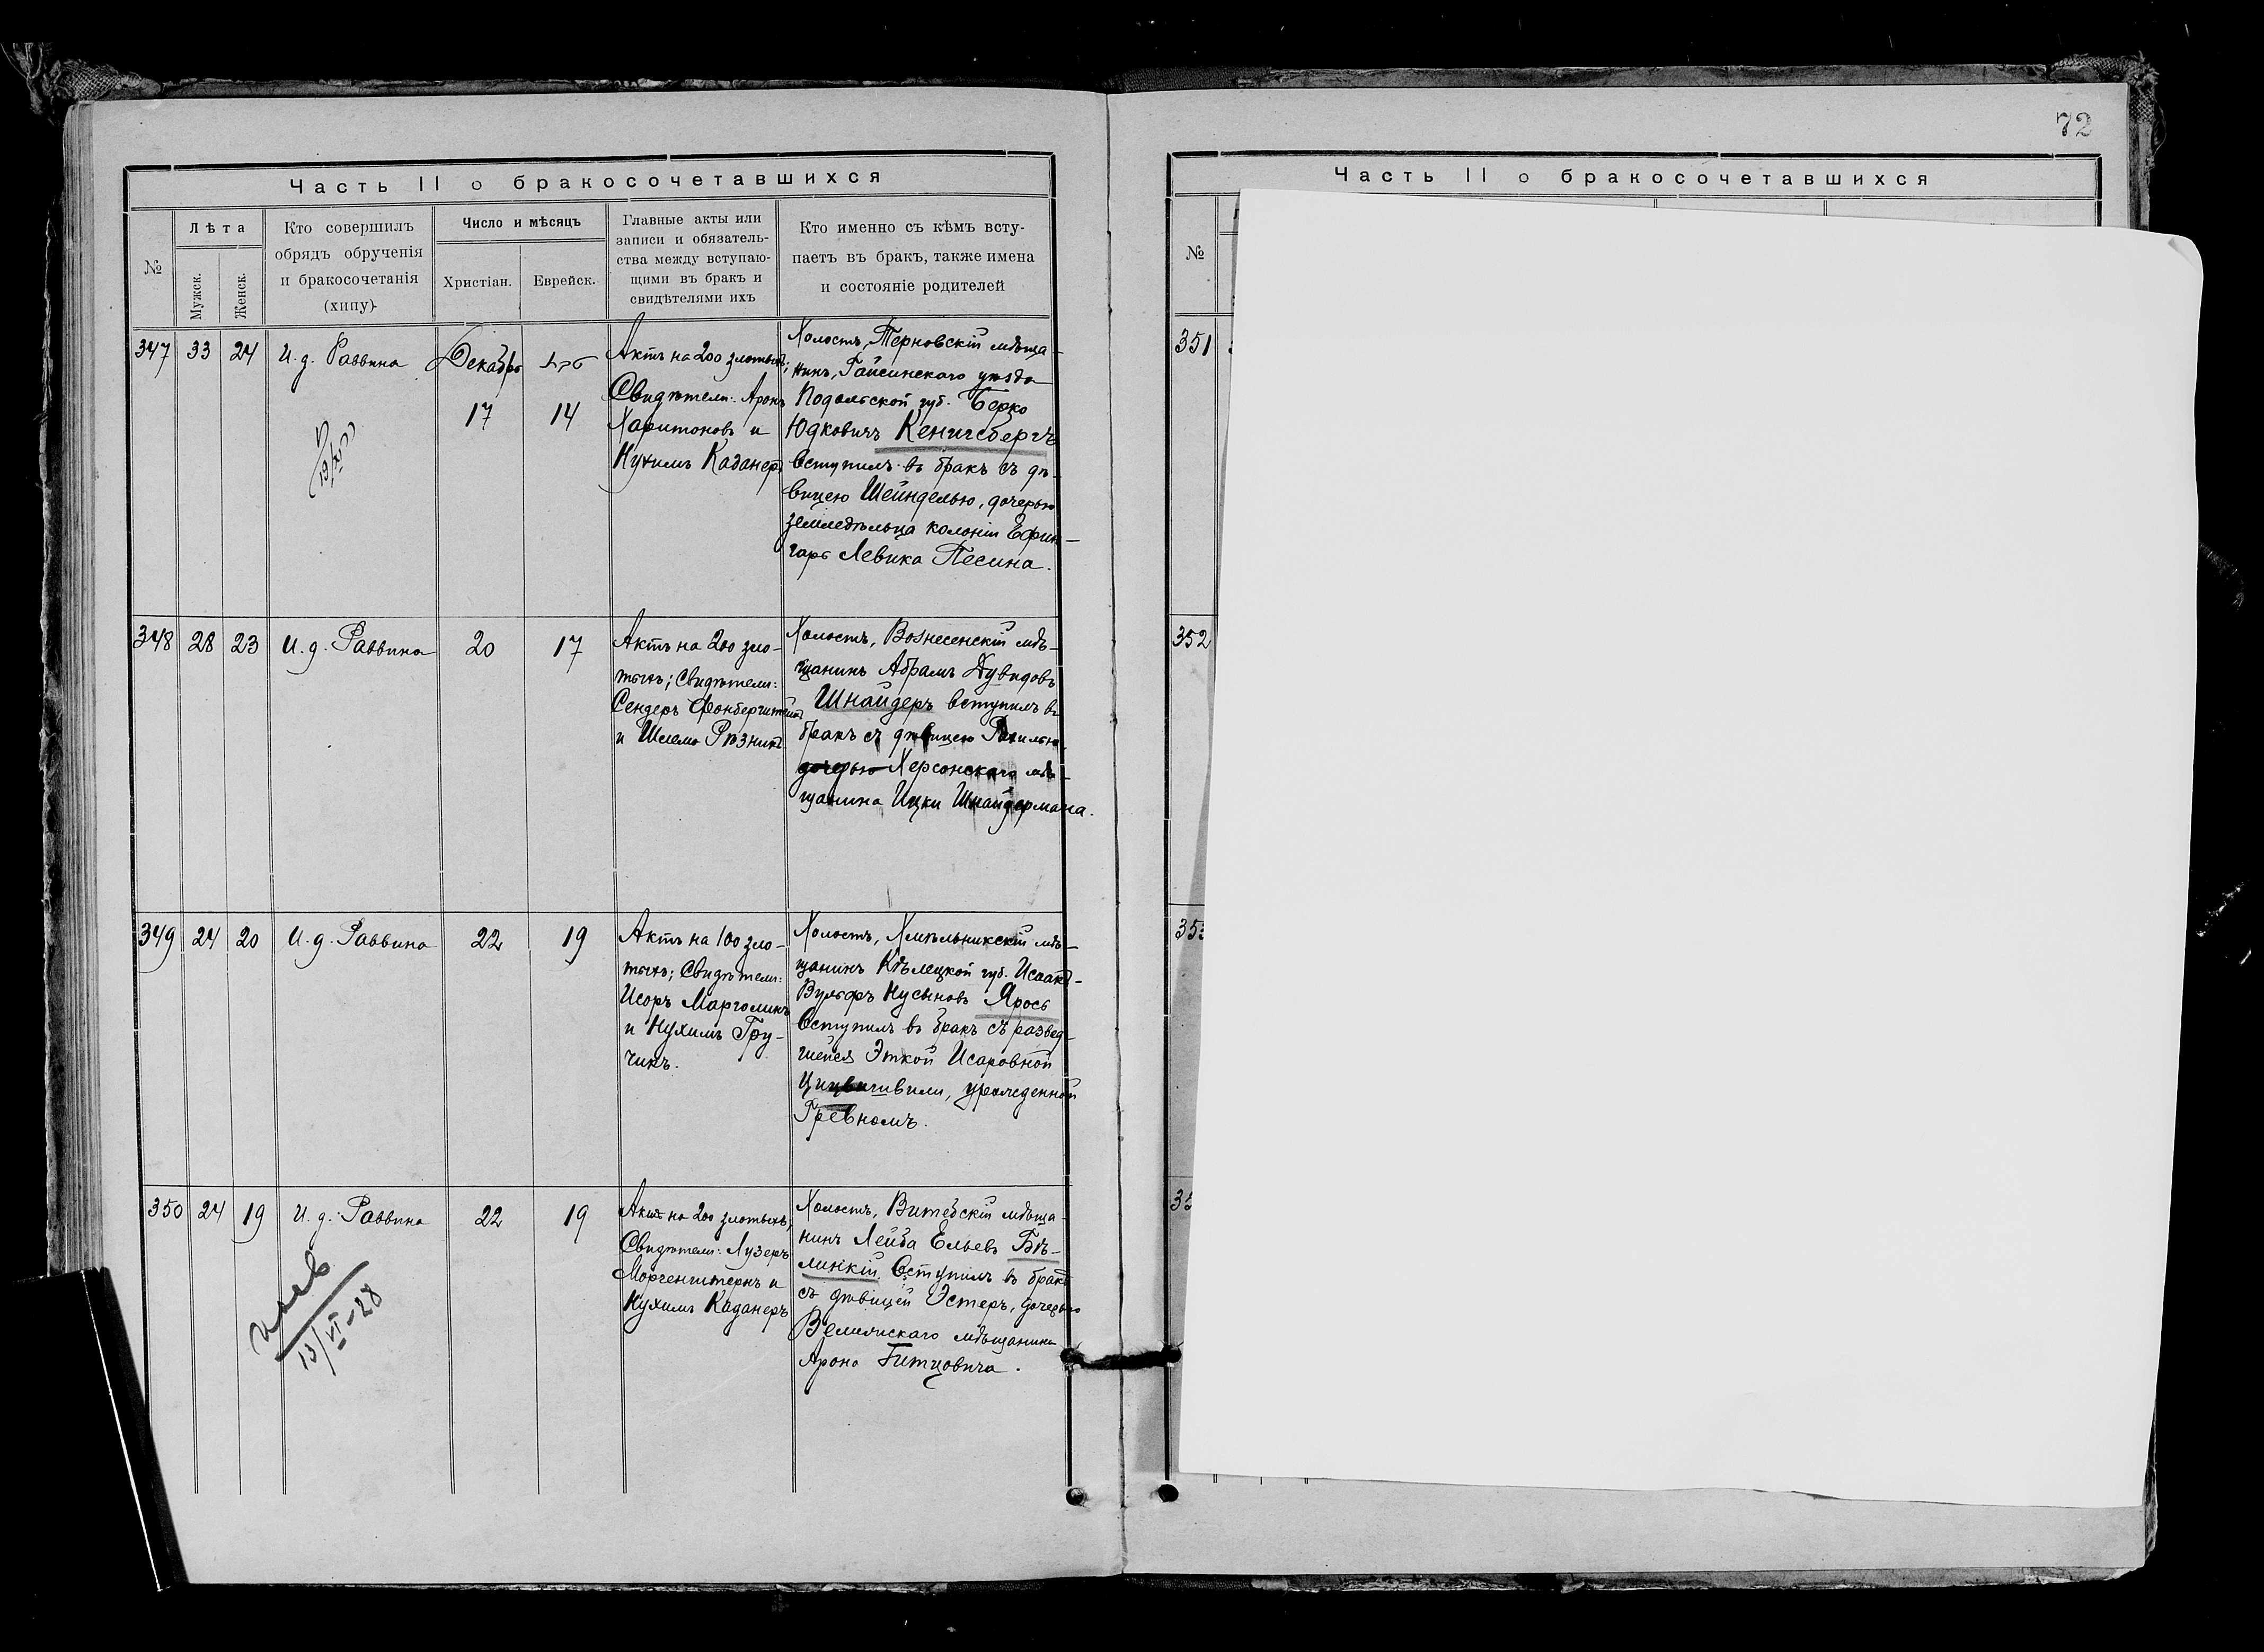 72
Часть II о бракосочетавшихся
№
Лѣта
Мужск.
Женск.
Кто совершилъ
обрядъ обрученія
и бракосочетанія
(хипу)
Число и мѣсяцъ
Христіан.
Еврейск.
Главные акты или
записи и обязатель-
ства между вступаю-
щими въ бракъ и
свидѣтелями ихъ
Кто именно съ кѣмъ всту-
паетъ въ бракъ, также имена
и состояніе родителей
347 33 24 И. д. Раввина
Декабрь
17
14
Актъ на 200 злотыхъ;
Свидѣтели: Аронъ
Харитоновъ и
Нухимъ Каданеръ
Холостъ, Терновскій мѣща-
нинъ, Гайсинскаго уѣзда
Подольской губ. Берко
Юдковичъ Кенигсбергъ
вступилъ въ бракъ съ дѣ-
вицею Шейнделью, дочерью
земледѣльца колоніи Ефин-
гаръ Левика Песина.
348 28 23 И. д. Раввина 20 17
Актъ на 200 зло-
тыхъ; Свидѣтели:
Сендеръ
и Шлема Рѣзникъ
Холостъ, Вознесенскій мѣ-
щанинъ Абрамъ Дувидовъ
Шнайдеръ вступилъ въ
бракъ съ дѣвицею Рахилью
дочерью Херсонскаго мѣ-
щанина Ицки Шнайдермана.
349 24 20 И. д. Раввина 22 19
Актъ на 100 зло-
тыхъ; Свидѣтели:
Исоръ Марголинъ
и Нухимъ Гру-
чикъ.
Холостъ, Хмѣльникскій мѣ-
щанинъ Кѣлецкой губ. Исаакъ-
Вульфъ Нусыновъ Яросъ
вступилъ въ бракъ съ развед-
шейся Эткой Исаровной
урожденной
350 24 19 И. д. Раввина 22 19
13/VI-28
Актъ на 200 злотыхъ;
Свидѣтели: Лузеръ
Моргенштернъ и
Нухимъ Каданеръ
Холостъ, Витебскій мѣща-
нинъ Лейба Ельевъ Бѣ-
линкій вступилъ въ бракъ
съ дѣвицей Эстеръ, дочерью
мѣщанина
Арона Гитцовича.
Часть II о бракосочетавшихся
№
351
352